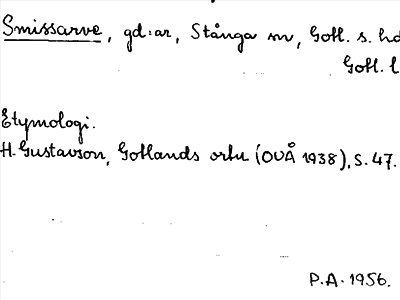 Smissarve, gd:ar, Stånga sn, Gotl. s. hd
Gotl. l
Etymologi.
H. Gustavson, Gotlands ortn (OUÅ 1938), s. 47.
P.A. 1956.